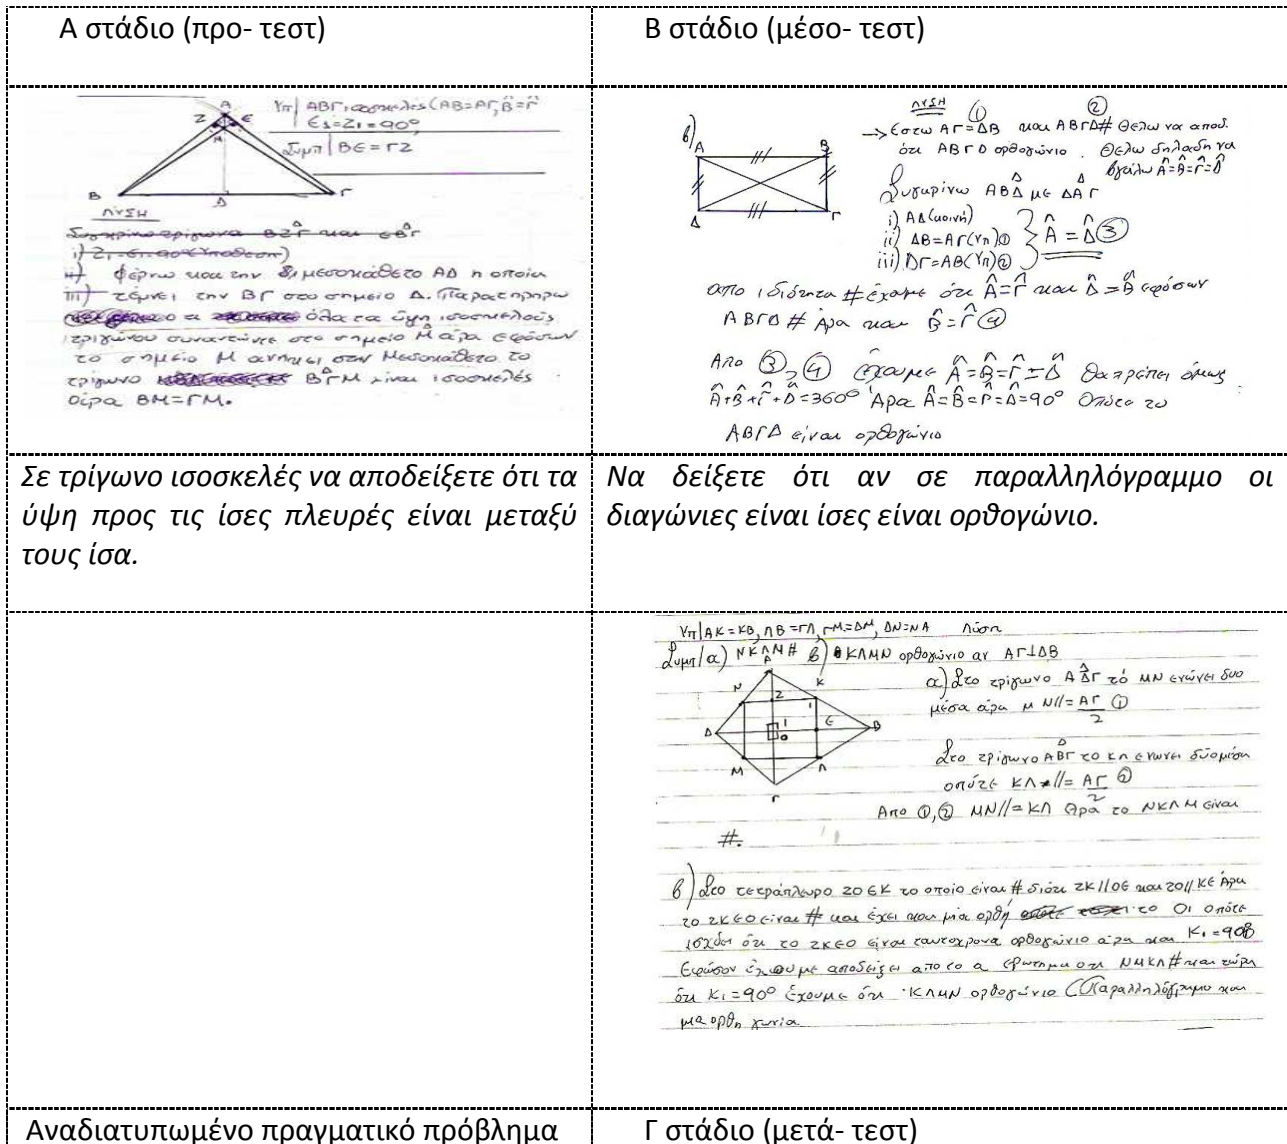 Α στάδιο (προ- τεστ)
Β στάδιο (μέσο- τεστ)
Υπ| ΑΒΓ ισοσκελές (ΑΒ=ΑΓ, Β̂=Γ̂
Ε1=Ζ1=90°
Συμπ| ΒΕ=ΓΖ
Α
Ζ
Ε
Μ
Β
Δ
Γ
ΛΥΣΗ
Συγκρίνω τρίγωνα ΒΖΓ και ΕΒΓ
i) Ζ1=Ε1=90° (Υπόθεση)
ii) φέρνω και την μεσοκάθετο ΑΔ η οποία
iii) τέμνει την ΒΓ στο σημείο Δ. Παρατηρώ
ότι όλα τα ύψη ισοσκελούς
τριγώνου συναντώνται στο σημείο Μ άρα εφόσων
το σημείο Μ ανήκει στην Μεσοκάθετο το
τρίγωνο ΒΓΜ είναι ισοσκελές
άρα ΒΜ=ΓΜ.
ΛΥΣΗ
β)
Α
Β
Δ
Γ
→ Έστω ΑΓ=ΔΒ ① και ΑΒΓΔ# ② Θέλω να αποδ.
ότι ΑΒΓΔ ορθογώνιο. Θέλω δηλαδή να
βγάλω Α̂=Β̂=Γ̂=Δ̂
Συγκρίνω ΑΒΔ με ΔΑΓ
i) ΑΔ (κοινή)
ii) ΔΒ=ΑΓ (Υπ) ①
iii) ΔΓ=ΑΒ (Υπ) ②
Α̂=Δ̂ ③
απο ιδιότητα # έχουμε ότι Α̂=Γ̂ και Δ̂=Β̂ εφόσων
ΑΒΓΔ # Άρα και Β̂=Γ̂ ④
Απο ③, ④ έχουμε Α̂=Β̂=Γ̂=Δ̂ Θα πρέπει όμως
Α̂+Β̂+Γ̂+Δ̂=360° Άρα Α̂=Β̂=Γ̂=Δ̂=90° Οπότε το
ΑΒΓΔ είναι ορθογώνιο
Σε τρίγωνο ισοσκελές να αποδείξετε ότι τα
ύψη προς τις ίσες πλευρές είναι μεταξύ
τους ίσα.
Να δείξετε ότι αν σε παραλληλόγραμμο οι
διαγώνιες είναι ίσες είναι ορθογώνιο.
Υπ| ΑΚ=ΚΒ, ΛΒ=ΓΛ, ΓΜ=ΔΜ, ΔΝ=ΝΑ Λύση
Συμπ| α) ΝΚΛΜ# β) ΚΛΜΝ ορθογώνιο αν ΑΓ⊥ΔΒ
Α
Ν
Κ
Ζ
1
Δ
1
Ε
Β
Ο
Μ
Λ
Γ
α) Στο τρίγωνο ΑΔΓ τό ΜΝ ενώνει δυο
μέσα άρα ΜΝ//=ΑΓ/2 ①
Στο τρίγωνο ΑΒΓ το ΚΛ ενωνει δύο μέσα
οπότε ΚΛ//=ΑΓ/2 ②
Απο ①,② ΜΝ//=ΚΛ Άρα το ΝΚΛΜ είναι
#.
β) Στο τετράπλευρο ΖΟΕΚ το οποίο είναι # διότι ΖΚ//ΟΕ και ΖΟ//ΚΕ Άρα
το ΖΚΕΟ είναι # και έχει και μία ορθή το Ο1 οπότε
ισχύει ότι το ΖΚΕΟ είναι ταυτοχρονα ορθογώνιο άρα και Κ1=90°
Εφόσον έχουμε αποδείξει απο το α ερωτημα οτι ΝΜΚΛ# και τώρα
ότι Κ1=90° έχουμε ότι ΚΛΜΝ ορθογώνιο (Παραλληλόγραμμο και
μια ορθη γωνία
Αναδιατυπωμένο πραγματικό πρόβλημα
Γ στάδιο (μετά- τεστ)